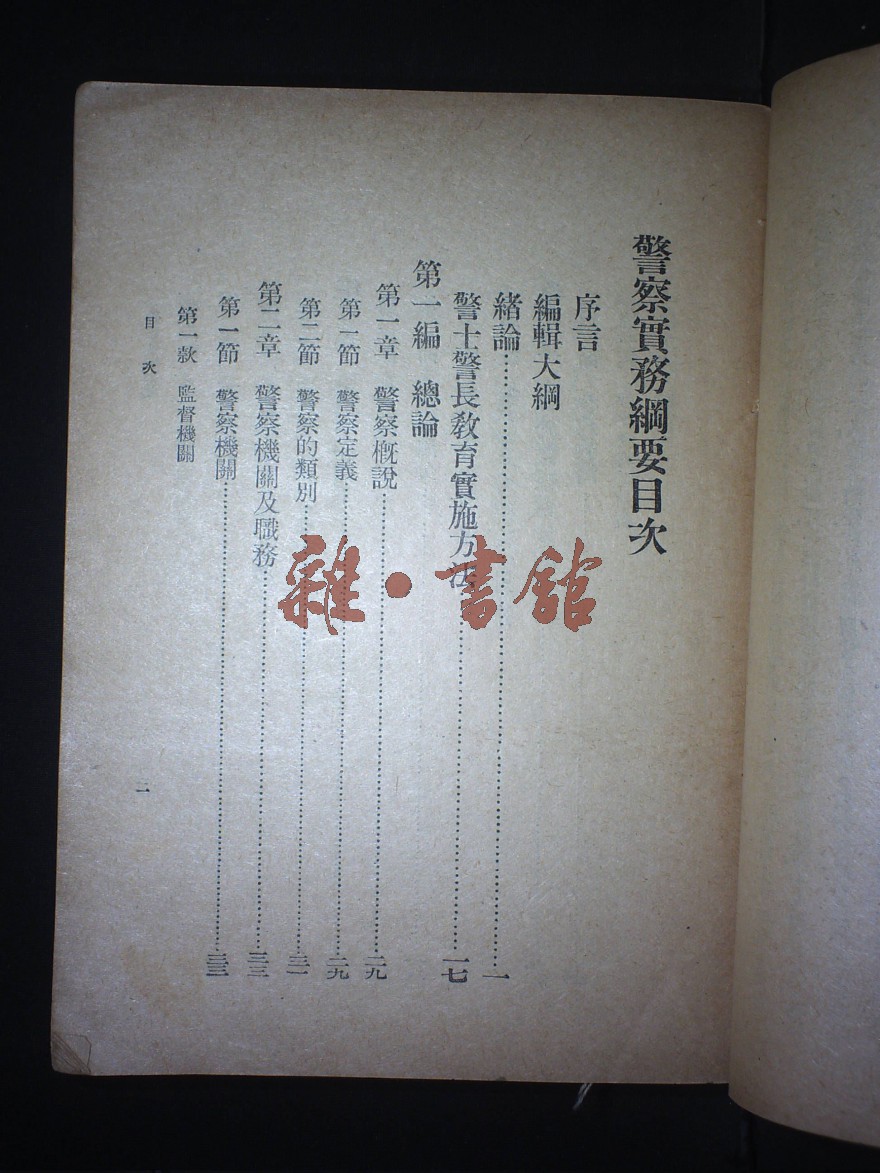 警察實務綱要目次
序言
編輯大綱
緒論……一
警士警長教育實施方法……一七
第一編　總論
第一章　警察概說……二九
第一節　警察定義……二九
第二節　警察的類別……三一
第二章　警察機關及職務……三三
第一節　警察機關……三三
第一款　監督機關
目次
二
雜·書館